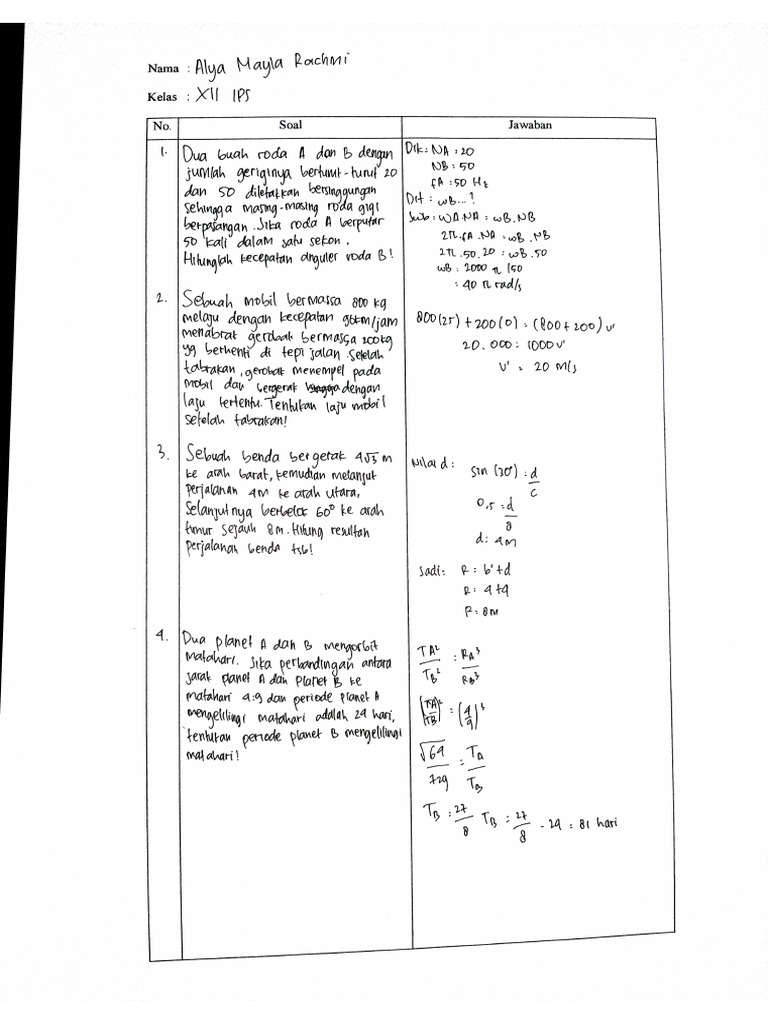 Nama : Alya Mayla Rachmi
Kelas : XII IPS
No. Soal Jawaban
1. Dua buah roda A dan B dengan
jumlah geriginya berturut-turut 20
dan 50 diletakkan bersinggungan
sehingga masing-masing roda gigi
berpasangan. Jika roda A berputar
50 kali dalam satu sekon.
Hitunglah kecepatan anguler roda B!
Dik: NA : 20
NB : 50
fA : 50 Hz
Dit : ωB...?
Jwb : WA.NA = ωB.NB
2π.fA.NA = ωB.NB
2π.50.20 = ωB.50
ωB : 2000 π/50
: 40 π rad/s
2. Sebuah mobil bermassa 800 kg
melaju dengan kecepatan 90km/jam
menabrak gerobak bermassa 200kg
yg berhenti di tepi jalan. Setelah
tabrakan, gerobak menempel pada
mobil dan bergerak dengan
laju tertentu. Tentukan laju mobil
setelah tabrakan!
800(25) + 200(0) = (800+200) v'
20.000 = 1000 v'
v' = 20 m/s
3. Sebuah benda bergerak 4√3 m
ke arah barat, kemudian melanjut
perjalanan 4m ke arah utara,
Selanjutnya berbelok 60° ke arah
timur sejauh 8m. Hitung resultan
perjalanan benda tsb!
Nilai d :
sin (30°) = d
c
0,5 = d
8
d: 4m
Jadi: R = b'+d
R = 4+4
R = 8m
4. Dua planet A dan B mengorbit
matahari. Jika perbandingan antara
jarak planet A dan Planet B ke
matahari 4:9 dan periode planet A
mengelilingi matahari adalah 24 hari,
tentukan periode planet B mengelilingi
matahari!
TA² = RA³
TB² RB³
[TA]² = (4)³
TB 9
√64 = TA
729 TB
TB = 27 TB = 27 . 24 = 81 hari
8 8